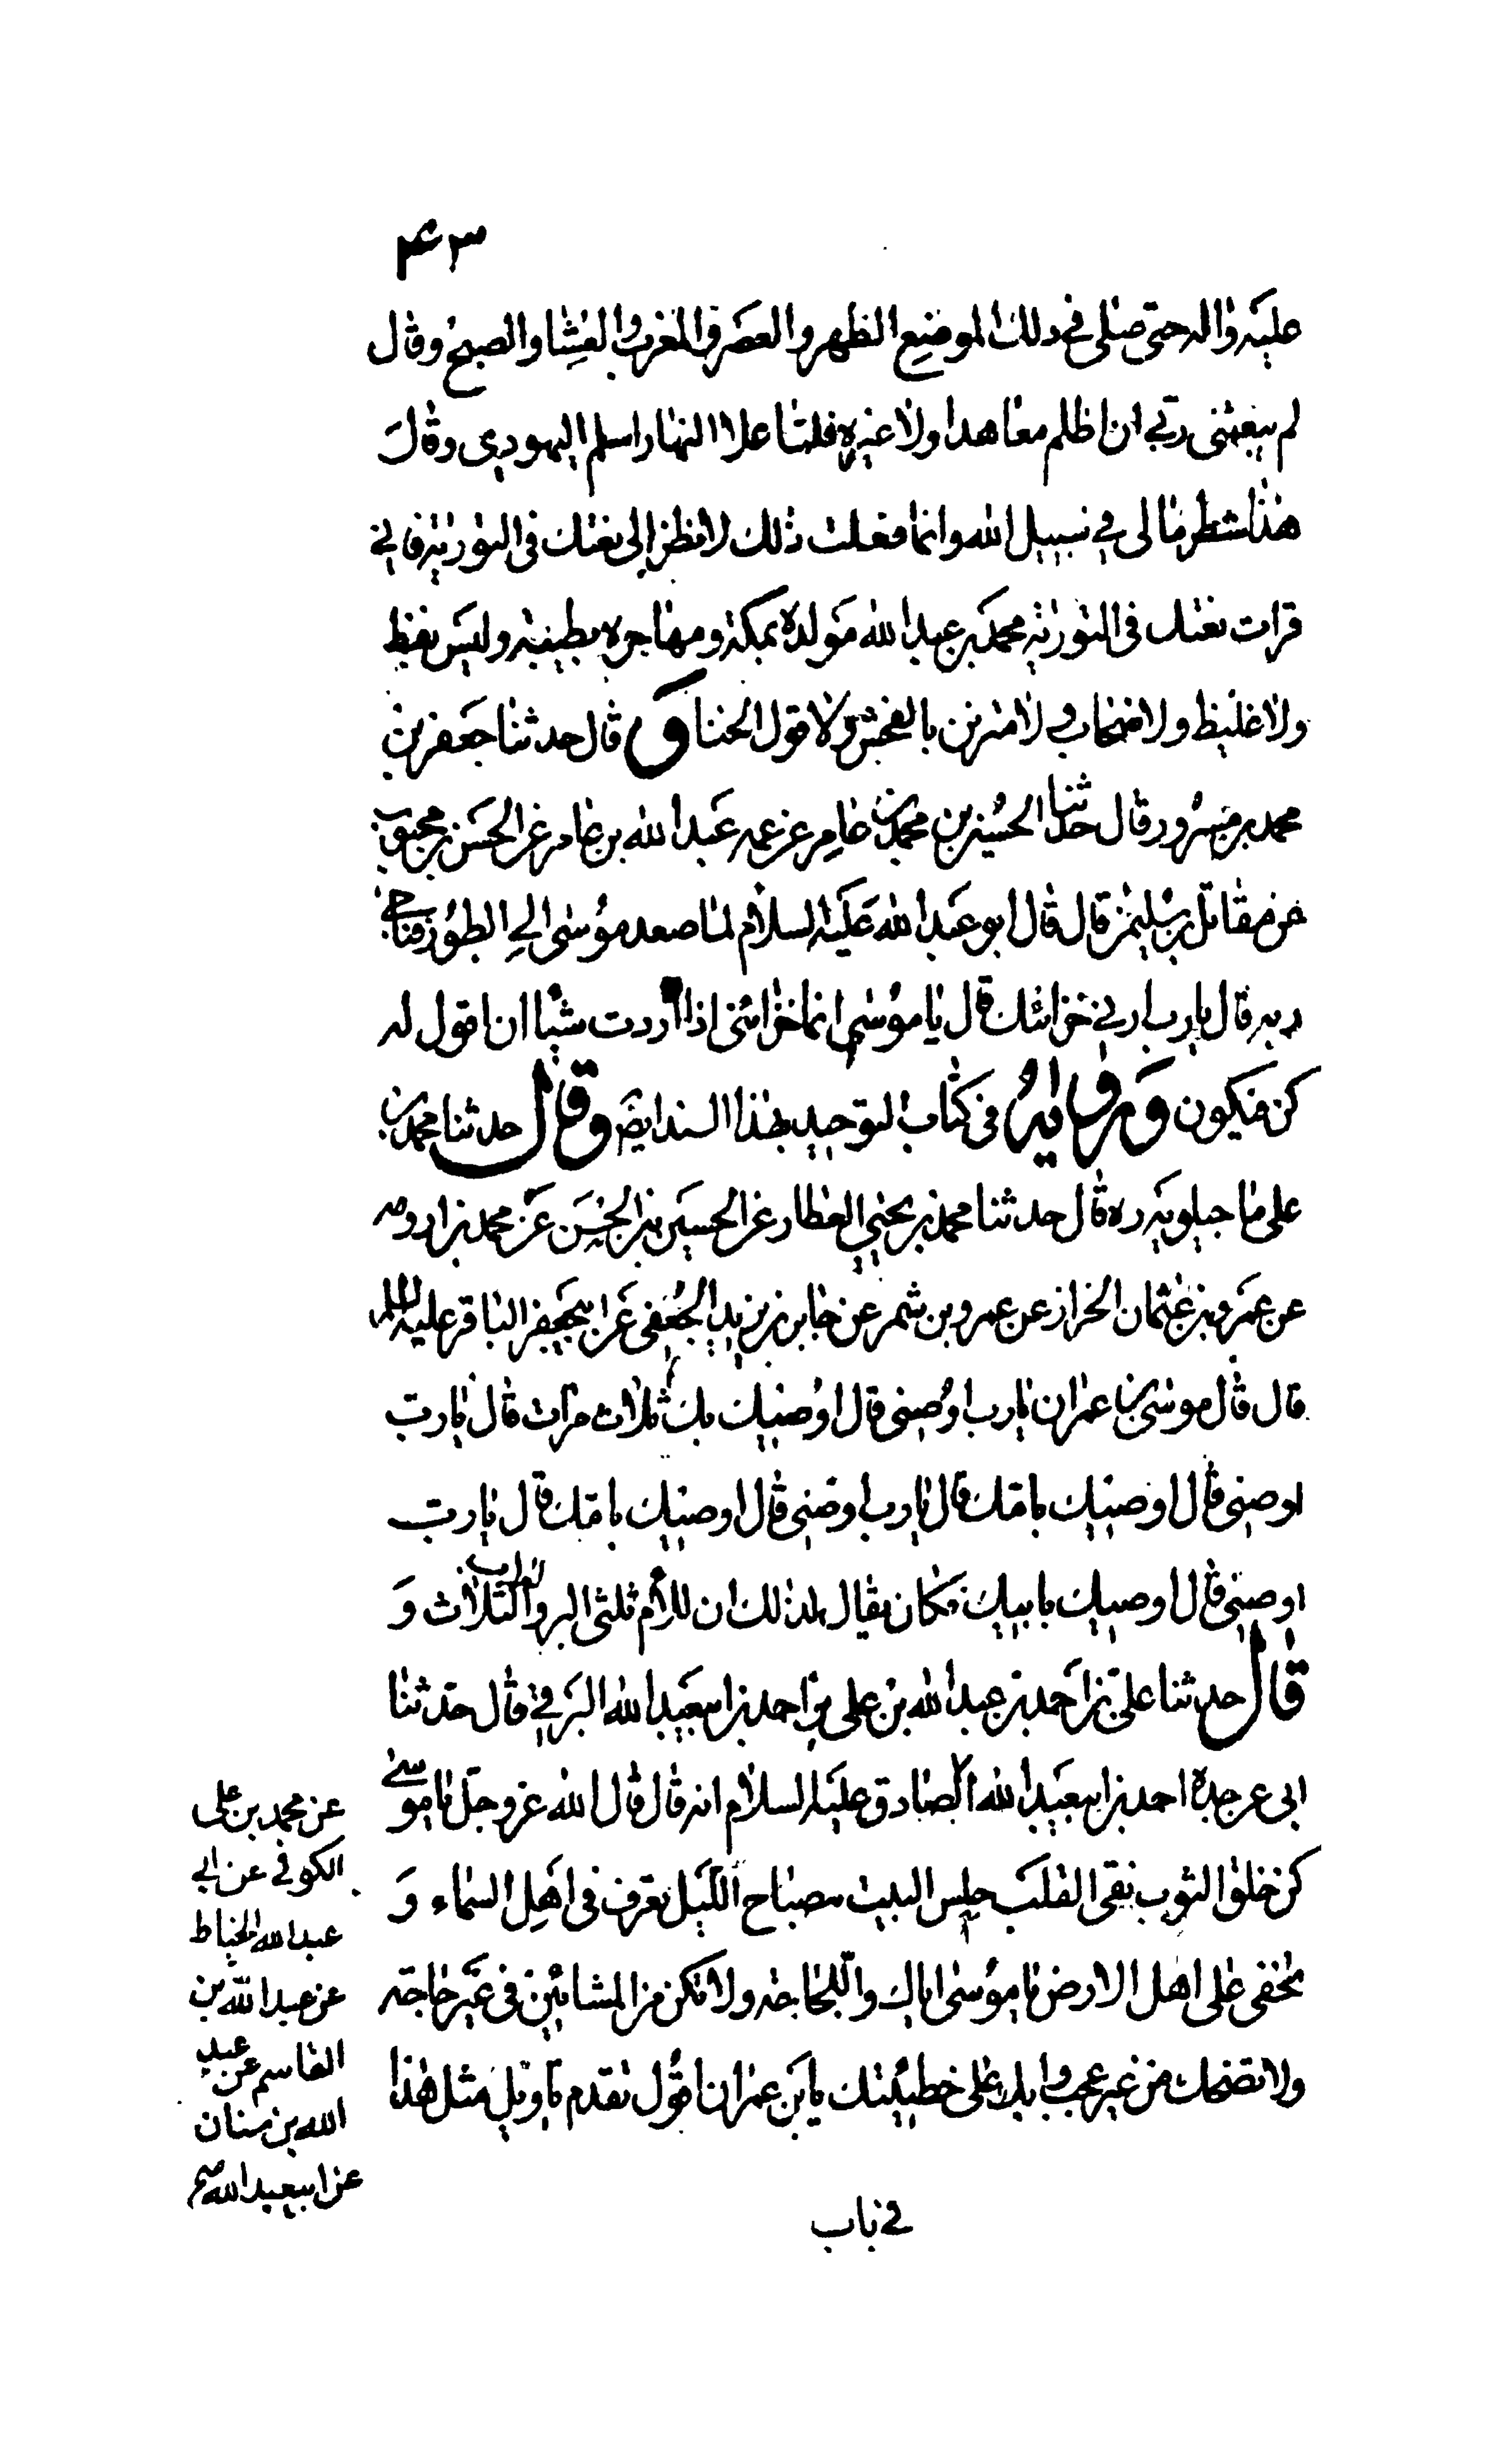 ٤٣
عليه واله حتى صلى في ذلك الموضع الظهر والعصر والمغرب والعشا والصبح وقال
لم يبعثنى ربي ان اظلم معاهدا ولا غيره فلما علا النهار اسلم اليهودي وقال
هذا شطر مالى في سبيل الله وانما فعلت ذلك لا نظر الى نعتك فى التورية فاني
قرات نعتك فى التورية محمد بن عبد الله مولده بمكة ومهاجره بطيبة وليس بفظ
ولا غليظ ولا ضحاب ولا متزين بالفحش ولا قول الخنا و قال حدثنا جعفر بن
محمد بن مسرور قال حدثنا الحسين بن محمد بن عامر عن عمه عبد الله بن عامر عن الحسن بن محبوب
عن مقاتل بن سليمن قال قال ابو عبد الله عليه السلام لما صعد موسى الى الطور فناجى
ربه قال يا رب ارني خزائنك قال يا موسى انما خزائنى اذا اردت شيئا ان اقول له
كن فيكون ورواه فى كتاب التوحيد بهذا السند ايضا وقال حدثنا محمد بن
على ماجيلويه ره قال حدثنا محمد بن يحيى العطار عن الحسين بن الحسن عن محمد بن اورمه
عن عمرو بن عثمان الخزاز عن عمرو بن شمر عن جابر بن يزيد الجعفى عن ابيجعفر الباقر عليه السلم
قال قال موسى بن عمران يا رب اوصنى قال اوصيك بك ثلاث مرات قال يا رب
اوصنى قال اوصيك بامك قال يا رب اوصنى قال اوصيك بامك قال يا رب
اوصنى قال اوصيك بابيك فكان يقال لذلك ان للأم ثلثى البر وللاب الثلاث و
قال حدثنا على بن احمد بن عبد الله بن على بن احمد بن ابيعبد الله البرقي قال حدثنا
ابى عن جده احمد بن ابيعبد الله الصادق عليه السلام انه قال قال الله عز وجل يا موسى
كن خلق الثوب نقى القلب حلس البيت مصباح الليل تعرف فى اهل السماء و
تخفى على اهل الارض يا موسى اياك واللجاجة ولا تكن من المشائين فى غير حاجة
ولا تضحك من غير عجب وابك على خطيئتك يابن عمران اقول تقدم تاويل مثل هذا
عن محمد بن على
الكوفي عن ابي
عبد الله الخياط
عن عبد الله بن
القاسم عن عبد
الله بن سنان
عن ابيعبد الله
في باب